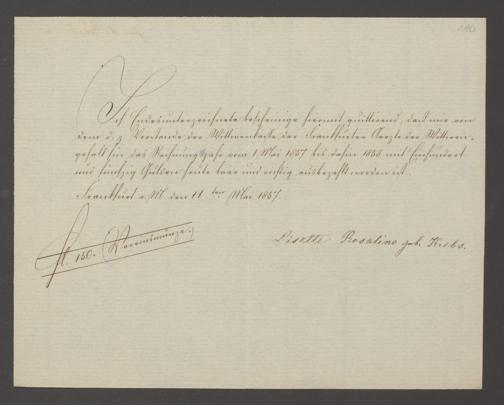 Ich Endesunterzeichnete bescheinige hiermit quittirend, daß mir von
dem d. z. Vorstande der Wittwenkasse der Frankfurter Aerzte der Wittwen-
gehalt für das Rechnungsjahr vom 1 Mai 1857 bis dahin 1858 mit Einhundert
und fünfzig Gulden heute baar und richtig ausbezahlt worden ist.
Frankfurt a. M. den 11ten Mai 1857.
fl. 150. Vereinsmünze.
Lisette Rosalino geb. Krebs.